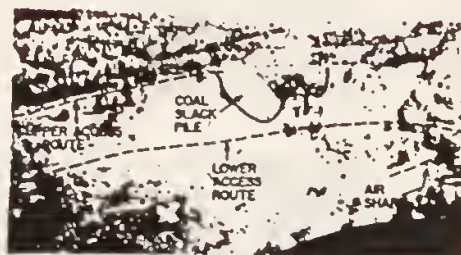 COAL
SLACK
PILE
UPPER ACCESS
ROUTE
LOWER
ACCESS
ROUTE
AIR
SHAFT